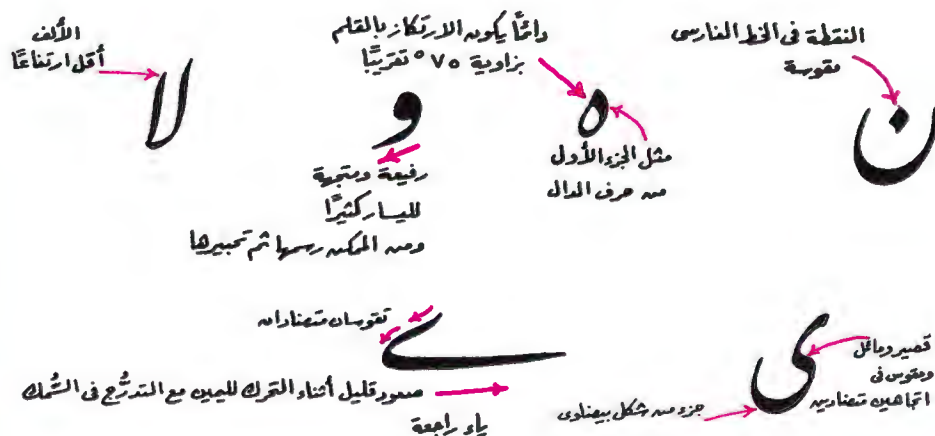 النقطة فى الخط الفارسى
مقوسة
ن
دائمًا يكون الارتكاز بالقلم
بزاوية ٧٥° تقريبًا
ه
مثل الجزء الأول
من حرف الدال
و
رفيعة ومتجهة
لليسار كثيرًا
ومن الممكن رسمها ثم تحبيرها
الألف
أقل ارتفاعًا
لا
ى
قصير ومائل
ومقوس فى
اتجاهين متضادين
جزء من شكل بيضاوى
تقوسان متضادان
ے
صعود قليل أثناء التحرك لليمين مع التدرُّج فى السُّمك
ياء راجعة